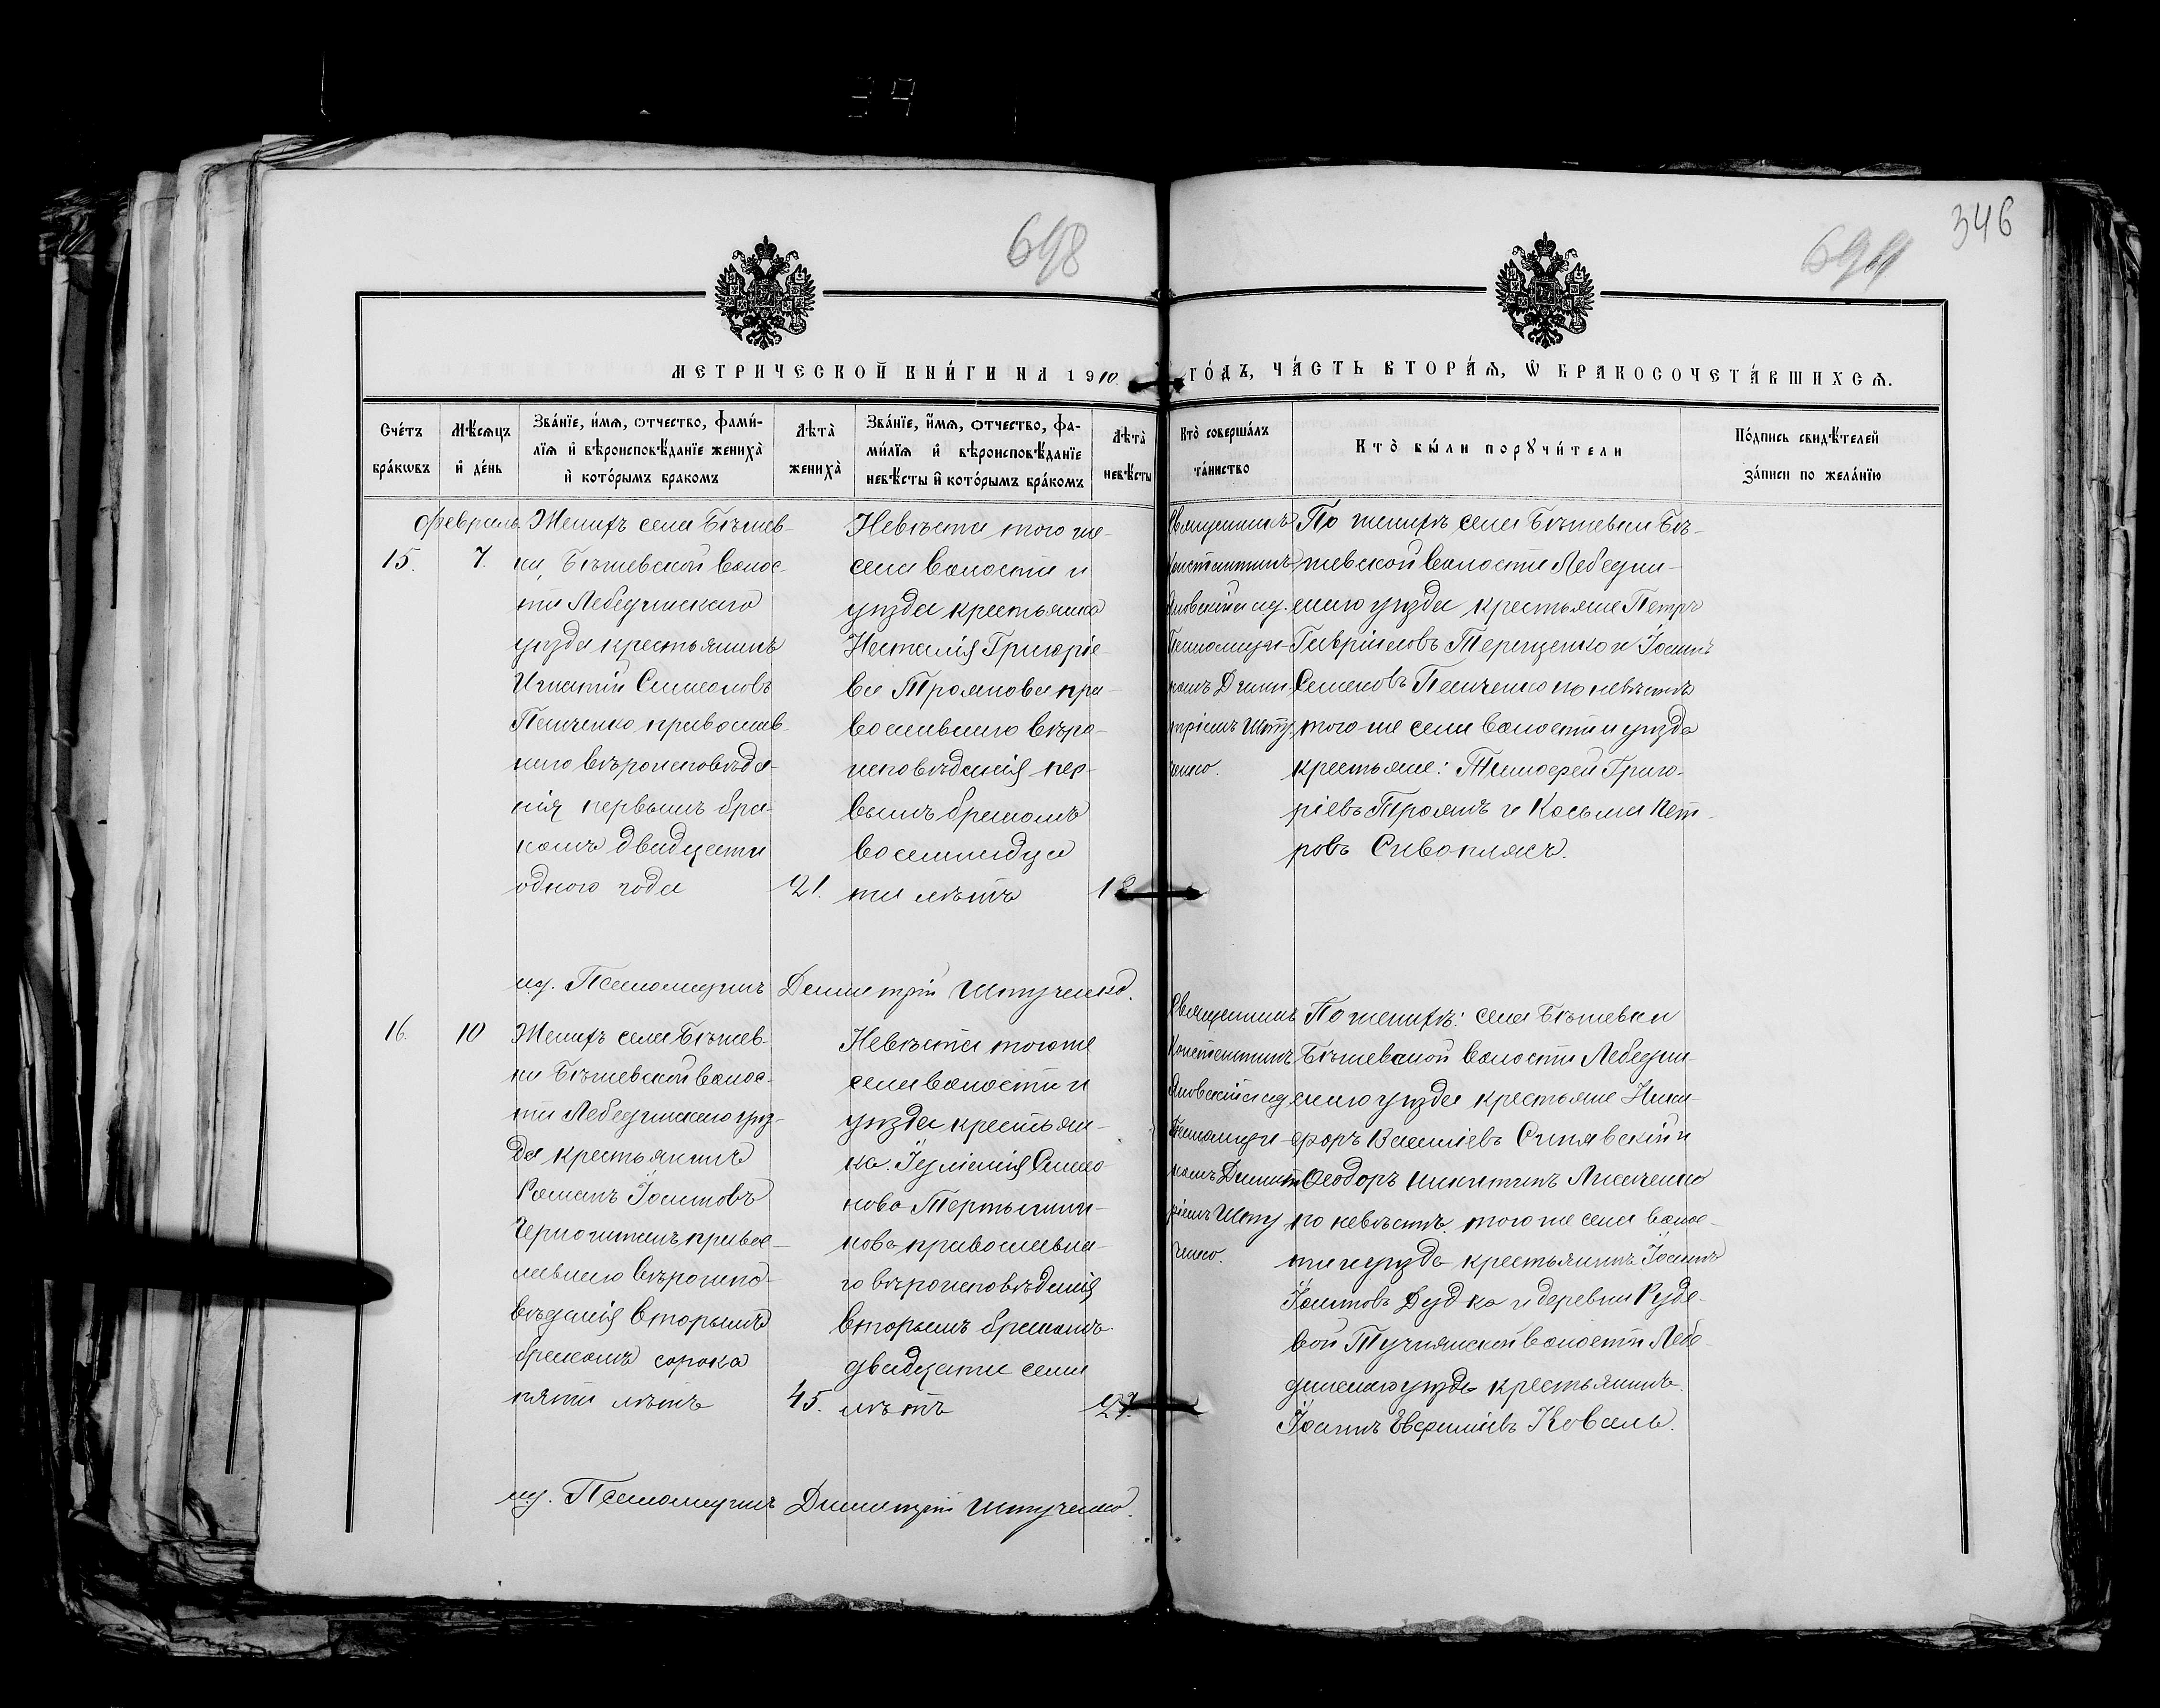 698
699
346
МЕТРИЧЕСКОЙ КНИ́ГИ НА 1910
ГО́ДЪ, ЧА́СТЬ ВТОРА́Я, Ѡ҆ БРАКОСОЧЕТА́ВШИХСЯ.
Сче́тъ бра́кѡвъ
Мѣ́сяцъ и҆ де́нь
Зва́нїе, и҆́мя, ѻтчество, фами́-
лїя и҆ вѣроисповѣ́данїе жениха̀
и҆ кото́рымъ бракомъ
Лѣта̀ жениха̀
Зва́нїе, и҆́мя, ѻтчество, фа-
ми́лїя и҆ вѣроисповѣ́данїе
невѣ́сты и҆ кото́рымъ бра́комъ
Лѣта̀ невѣ́сты
Кто̀ соверша́лъ та́инство
Кто̀ бы́ли порꙋчи́тели
По́дпись свидѣ́телей за́писи по жела́нїю
Февраль
15.
7.
Женихъ села Бѣшев-
ки, Бѣшевской волос-
ти Лебединскаго
уѣзда крестьянинъ
Игнатій Симеоновъ
Панченко православ-
наго вѣроисповѣда-
нія первымъ бра-
комъ двадцати
одного года
21.
Невѣста того же
села волости и
уѣзда крестьянка
Наталія Григоріе-
ва Троянова пра-
вославнаго вѣро-
исповѣданія пер-
вымъ бракомъ
восемнадца
ти лѣтъ
18
Священникъ
Константинъ
Яновскій съ и.д.
Псаломщи-
комъ Дими-
тріемъ Шту-
ченко.
По женихѣ села Бѣшевки Бѣ-
шевской волости Лебедин-
скаго уѣзда крестьяне Петръ
Гавріиловъ Терещенко и Іоаннъ
Семеновъ Панченко по невѣстѣ
того-же села волости и уѣзда
крестьяне: Тимофей Григо-
ріевъ Троянъ и Косьма Пет-
ровъ Сивоплясъ.
и.д. Псаломщикъ Димитрій Штученко.
16.
10
Женихъ села Бѣшев-
ки Бѣшевской волос-
ти Лебединскаго уѣз-
да крестьянинъ
Романъ Іоанновъ
православнаго вѣроиспо-
вѣданія вторымъ
бракомъ сорока
пяти лѣтъ
45.
Невѣста того же
села волости и
уѣзда крестьян-
ка Іуліанія
православна-
го вѣроисповѣданія
вторымъ бракомъ
двадцати семи
лѣтъ
27.
Священникъ
Константинъ
Яновскій съ и.д.
Псаломщи-
комъ Димит-
ріемъ Шту
ченко.
По женихѣ: села Бѣшевки
Бѣшевской волости Лебедин-
скаго уѣзда крестьяне Ники-
форъ Василіевъ Синявскій и
Ѳеодоръ Никитинъ
по невѣстѣ: того же села волос-
ти и уѣзда крестьянинъ Іоаннъ
Іоанновъ Дудка и деревни Рудо-
вой Тучнянской волости Лебе-
динскаго уѣзда крестьянинъ
Іоаннъ Евфиміевъ Коваль.
и.д. Псаломщикъ Димитрій Штученко.